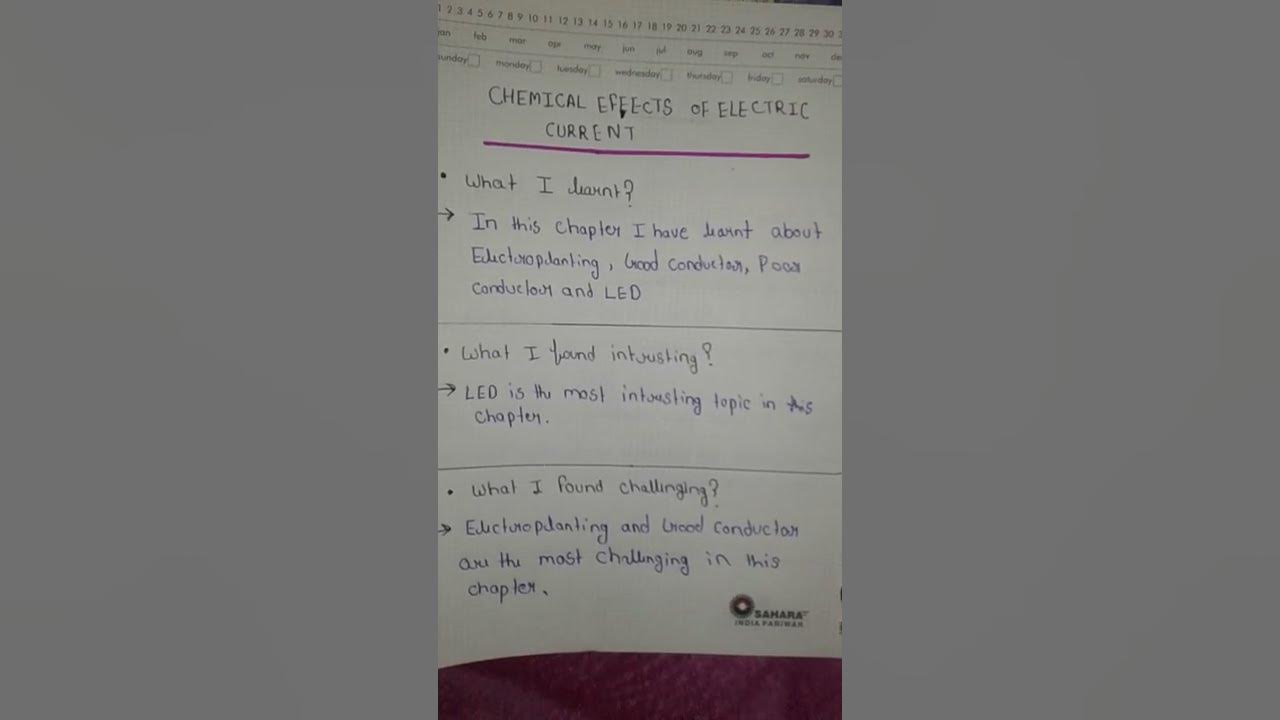 1 2 3 4 5 6 7 8 9 10 11 12 13 14 15 16 17 18 19 20 21 22 23 24 25 26 27 28 29 30 3
jan feb mar apr may jun jul aug sep oct nov de
sunday monday tuesday wednesday thursday friday saturday
CHEMICAL EFFECTS OF ELECTRIC
CURRENT
• What I learnt?
→ In this chapter I have learnt about
Electroplanting, Good conductor, Poor
conductor and LED
• What I found intresting?
→ LED is the most intresting topic in this
chapter.
• What I found challenging?
→ Electroplanting and Good conductor
are the most challenging in this
chapter.
SAHARA
INDIA PARIWAR